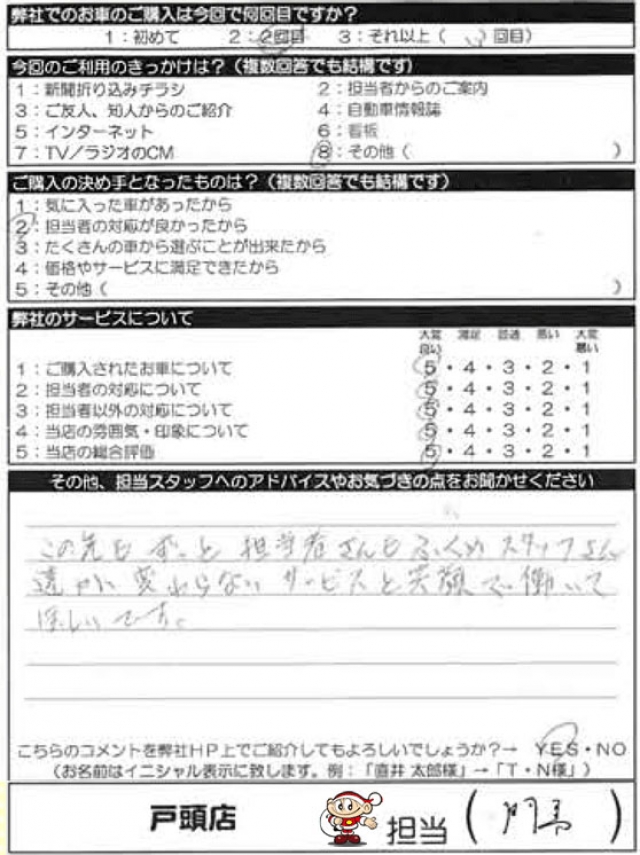 弊社でのお車のご購入は今回で何回目ですか？
1：初めて　2：2回目　3：それ以上（　）回目）
今回のご利用のきっかけは？（複数回答でも結構です）
1：新聞折り込みチラシ　2：担当者からのご案内
3：ご友人、知人からのご紹介　4：自動車情報誌
5：インターネット　6：看板
7：TV／ラジオのCM　8：その他（　）
ご購入の決め手となったものは？（複数回答でも結構です）
1：気に入った車があったから
2：担当者の対応が良かったから
3：たくさんの車から選ぶことが出来たから
4：価格やサービスに満足できたから
5：その他（　）
弊社のサービスについて
大変良い　満足　普通　悪い　大変悪い
1：ご購入されたお車について　5・4・3・2・1
2：担当者の対応について　5・4・3・2・1
3：担当者以外の対応について　5・4・3・2・1
4：当店の雰囲気・印象について　5・4・3・2・1
5：当店の総合評価　5・4・3・2・1
その他、担当スタッフへのアドバイスやお気づきの点をお聞かせください
この先も ずっと 担当者さんもふくめ スタッフさん
達が 変わらない サービスと笑顔で 働いて
ほしいです。
こちらのコメントを弊社HP上でご紹介してもよろしいでしょうか？→ YES・NO
（お名前はイニシャル表示に致します。例：「直井 太郎様」→「T・N様」）
戸頭店　担当（　）